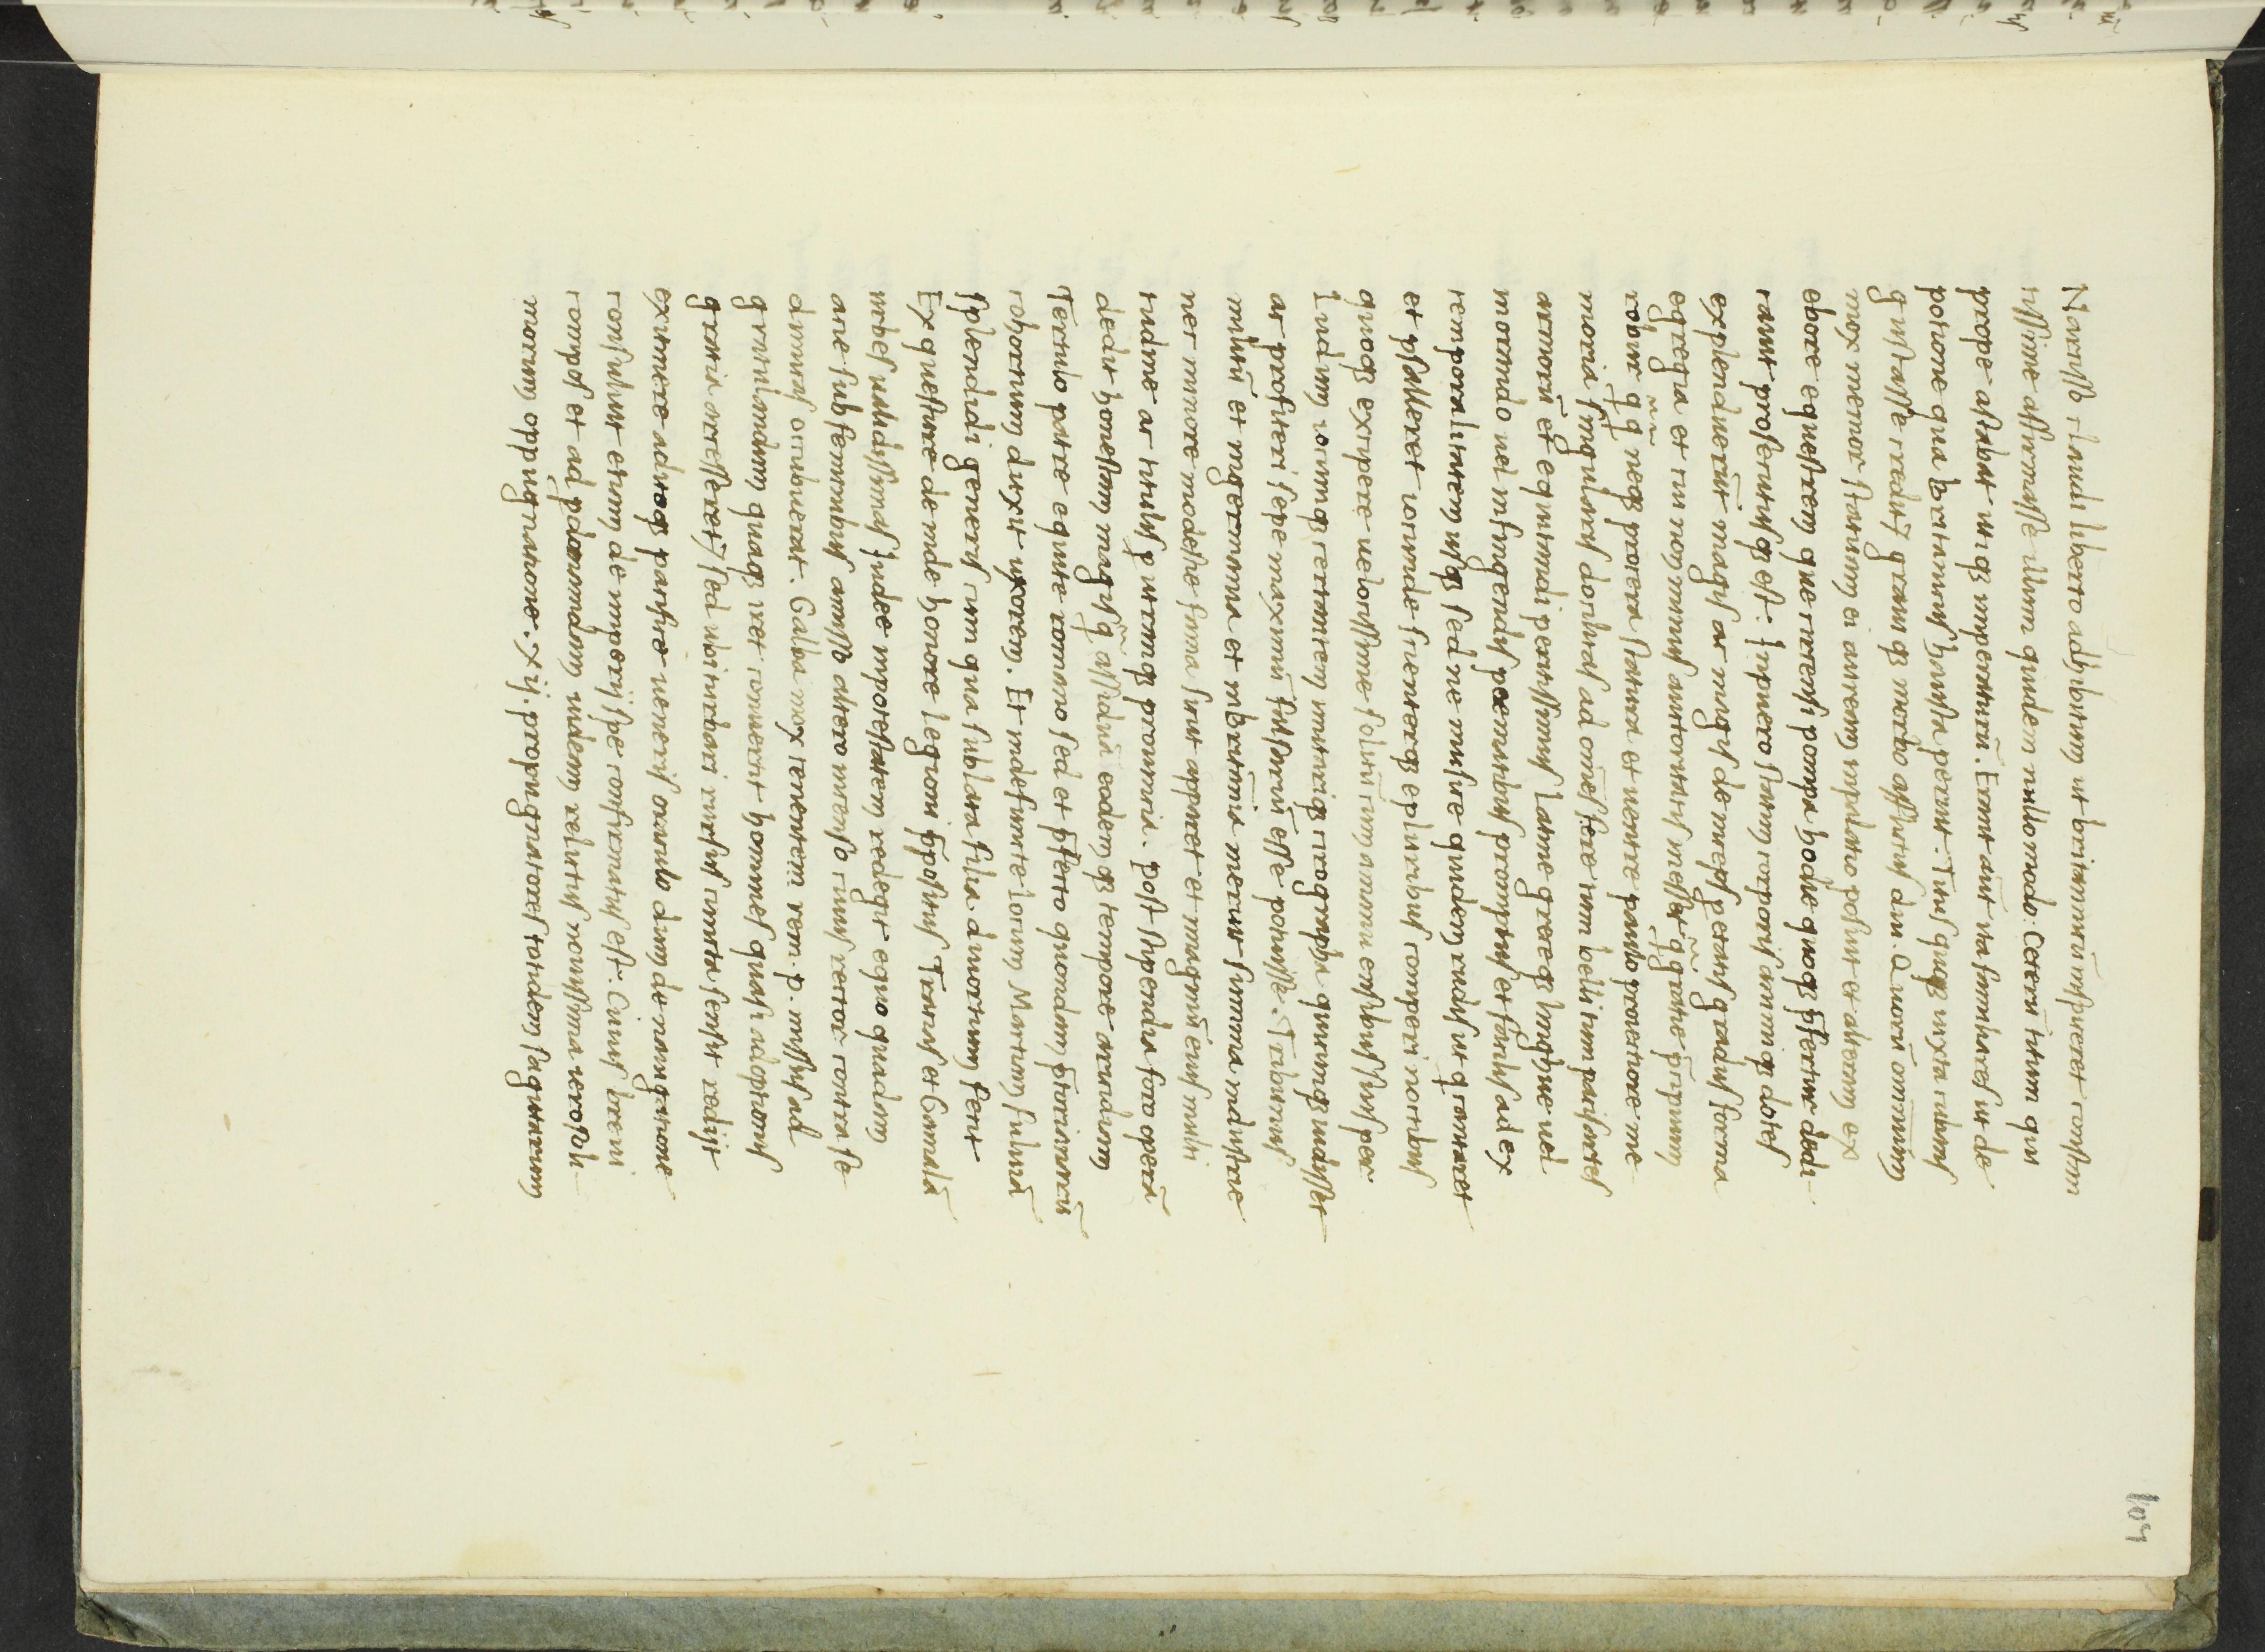 109
Narcisso claudi liberto adhibitum ut britannicū inspiceret constan
tissime affirmasse illum quidem nullo modo. Ceterū titum qui
prope astabat utiqꝫ imperaturū. Erant aūt ita familiares ut de
potione qua britannicus hausta periit. Titus quoqꝫ iuxta cubans
gustasse credit⁊ grauiqꝫ morbo afflictus diu. Quorū omnium
mox memor statuam ei auream inpalatio posuit et alteram ex
ebore equestrem que circensi pompa hodie quoqꝫ p̄fertur dedi-
cauit prosecutusqꝫ est. Inpuero statim corporis animiqꝫ dotes
explenduerūt magis ac magis deinceps per etatis gradus forma
egregia et cui non minus auctoritatis inesset q̄ gratie p̄cipuum
robur q̄q̄ neqꝫ procera statura et uentre paulo proiectiore me
moria singularis docilitas ad om̄es fere tum belli tum pacis artes
armorū et equitandi peritissimus Latine greceqꝫ lingue uel
inorando uel infingendis poematibus promptus et facilis ad ex
temporalitatem usqꝫ sed ne musice quidem rudis ut q cantaret
et psalleret iocunde scienterqꝫ epluribus comperi notibus
quoqꝫ excipere uelocissime solitū cum amanuensibus suis per
Ludum iocumqꝫ certantem imitariqꝫ cirographa quecumqꝫ uidisset
ac profiteri sepe maximū falsariū esse potuisse. Tribunus
militū et ingermania et inbritānia meruit summa industrie
nec minore modestie fama sicut apparet et imaginū eius multi
tudine ac titulis p utramqꝫ prouincia. Post stipendia foro operā
dedit honestam magis q̄ assiduā eodemqꝫ tempore arricidiam
Tertulo patre equite romano sed et p̄fecto quondam p̄torianorū
cohortium duxit uxorem. Et indefuncte locum Martiam fuluiā
splendidi generis cum qua sublata filia diuortium fecit
Ex questure deinde honore legioni p̄positus Taricas et Gamalā
urbes ualidissimas Iudee inpotestatem redegit equo quadam
acie sub feminibus amisso altero inenso cuius rector contra se
dimicans occubuerat. Galba mox tenentem rem .p. missus ad
gratulandum quaqꝫ iret conuertit homines quasi adoptionis
gratia accesseret⁊ sed ubi turbari rursus cuncta sensit redijt
exitinere aditoqꝫ paphie ueneris oraculo dum de nauigatione
consulit etiam de imperij spe confirmatus est. Cuius breui
compos et ad p̄domandam iudeam relictus nouissima ierosoli-
morum oppugnatione .xij. propugnatores totidem sagittarum